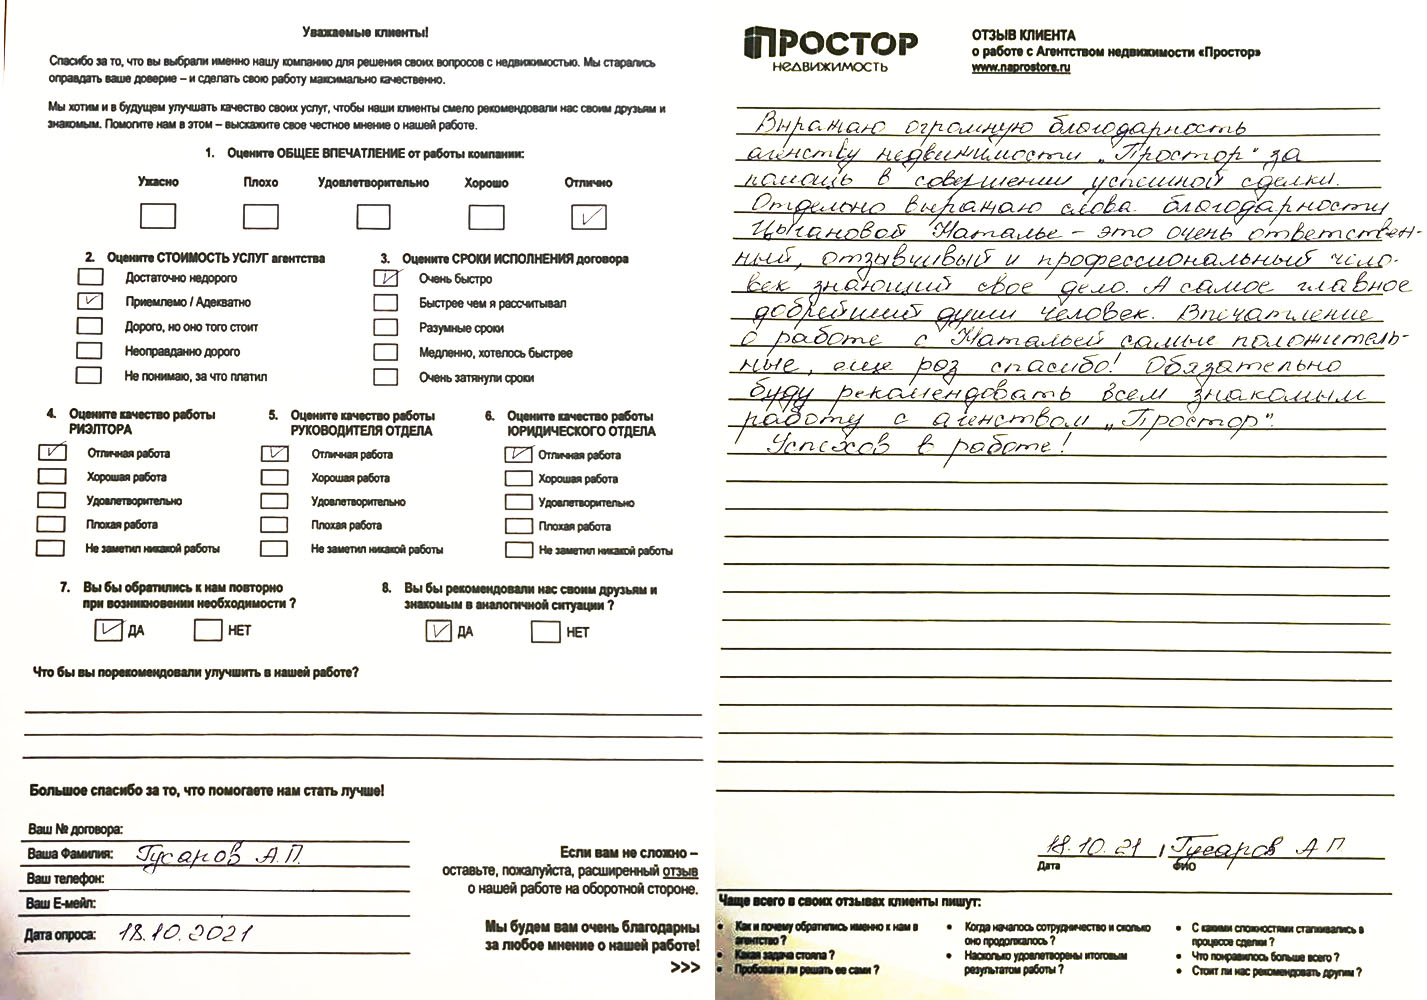 Уважаемые клиенты!
Спасибо за то, что вы выбрали именно нашу компанию для решения своих вопросов с недвижимостью. Мы старались
оправдать ваше доверие – и сделать свою работу максимально качественно.
Мы хотим и в будущем улучшать качество своих услуг, чтобы наши клиенты смело рекомендовали нас своим друзьям и
знакомым. Помогите нам в этом – выскажите свое честное мнение о нашей работе.
1. Оцените ОБЩЕЕ ВПЕЧАТЛЕНИЕ от работы компании:
Ужасно Плохо Удовлетворительно Хорошо Отлично
2. Оцените СТОИМОСТЬ УСЛУГ агентства
Достаточно недорого
Приемлемо / Адекватно
Дорого, но оно того стоит
Неоправданно дорого
Не понимаю, за что платил
3. Оцените СРОКИ ИСПОЛНЕНИЯ договора
Очень быстро
Быстрее чем я рассчитывал
Разумные сроки
Медленно, хотелось быстрее
Очень затянули сроки
4. Оцените качество работы
РИЭЛТОРА
Отличная работа
Хорошая работа
Удовлетворительно
Плохая работа
Не заметил никакой работы
5. Оцените качество работы
РУКОВОДИТЕЛЯ ОТДЕЛА
Отличная работа
Хорошая работа
Удовлетворительно
Плохая работа
Не заметил никакой работы
6. Оцените качество работы
ЮРИДИЧЕСКОГО ОТДЕЛА
Отличная работа
Хорошая работа
Удовлетворительно
Плохая работа
Не заметил никакой работы
7. Вы бы обратились к нам повторно
при возникновении необходимости ?
ДА НЕТ
8. Вы бы рекомендовали нас своим друзьям и
знакомым в аналогичной ситуации ?
ДА НЕТ
Что бы вы порекомендовали улучшить в нашей работе?
Большое спасибо за то, что помогаете нам стать лучше!
Ваш № договора:
Ваша Фамилия: Гусаров А.П.
Ваш телефон:
Ваш Е-мейл:
Дата опроса: 18.10.2021
Если вам не сложно –
оставьте, пожалуйста, расширенный отзыв
о нашей работе на оборотной стороне.
Мы будем вам очень благодарны
за любое мнение о нашей работе!
>>>
ПРОСТОР
НЕДВИЖИМОСТЬ
ОТЗЫВ КЛИЕНТА
о работе с Агентством недвижимости «Простор»
www.naprostore.ru
Выражаю огромную благодарность
агенству недвижимости „Простор" за
помощь в совершении успешной сделки.
Отдельно выражаю слова благодарности
Цыгановой Наталье – это очень ответствен-
ный, отзывчивый и профессиональный чело-
век знающий свое дело. А самое главное
добрейшей души человек. Впечатление
о работе с Натальей самые положитель-
ные, еще раз спасибо! Обязательно
буду рекомендовать всем знакомым
работу с агенством „Простор".
Успехов в работе!
18.10.21 / Гусаров А П
Дата ФИО
Чаще всего в своих отзывах клиенты пишут:
• Как и почему обратились именно к нам в
агентство ?
• Какая задача стояла ?
• Пробовали ли решать ее сами ?
• Когда началось сотрудничество и сколько
оно продолжалось ?
• Насколько удовлетворены итоговым
результатом работы ?
• С какими сложностями сталкивались в
процессе сделки ?
• Что понравилось больше всего ?
• Стоит ли нас рекомендовать другим ?